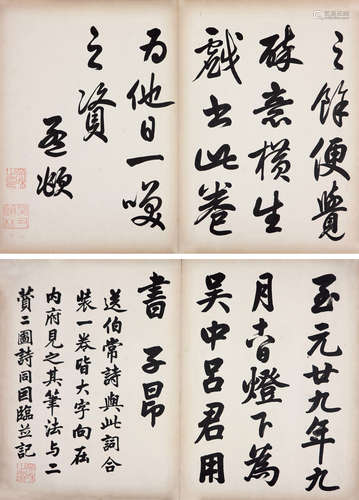 之餘便覺
酔意橫生
戲書此卷
為他日一噱
之資
孟頫
至元廿九年九
月燈下為
吳中呂君用
書子昂
送伯常詩與此詞合
裝一卷皆大字向在
內府見之其筆法與二
贊二圖詩同因臨並記